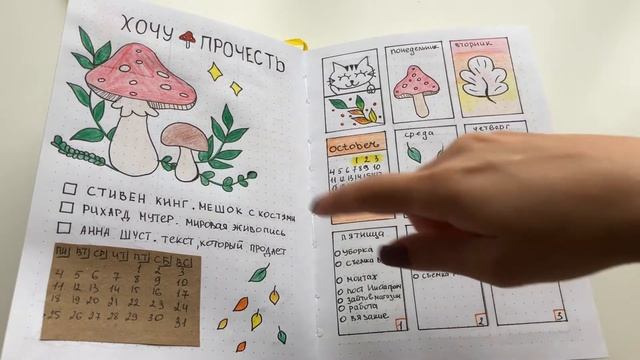 ХОЧУ ПРОЧЕСТЬ
СТИВЕН КИНГ. МЕШОК С КОСТЯМИ
РИХАРД МУТЕР. МИРОВАЯ ЖИВОПИСЬ
АННА ШУСТ. ТЕКСТ, КОТОРЫЙ ПРОДАЕТ
ПН ВТ СР ЧТ ПТ СБ ВС
1 2 3
4 5 6 7 8 9 10
11 12 13 14 15 16 17
18 19 20 21 22 23 24
25 26 27 28 29 30 31
понедельник
вторник
October
1 2 3
4 5 6 7 8 9 10
11 12 13 14 15
среда
четверг
пятница
уборка
съемка
монтаж
пост
зайти в магазин
работа
вязание
1
2
3